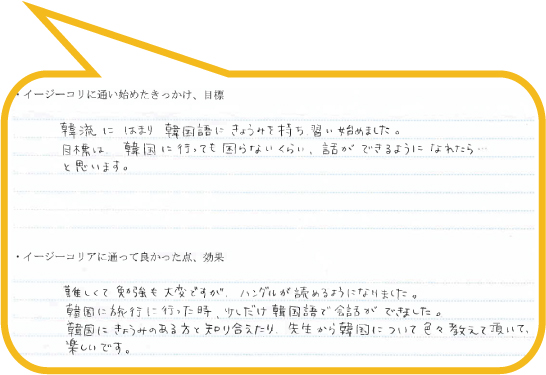 ・イージーコリに通い始めたきっかけ、目標
韓流にはまり韓国語にきょうみを持ち習い始めました。
目標は、韓国に行っても困らないくらい、話ができるようになれたら…
と思います。
・イージーコリアに通って良かった点、効果
難しくて勉強も大変ですが、ハングルが読めるようになりました。
韓国に旅行に行った時、少しだけ韓国語で会話ができました。
韓国にきょうみのある方と知り合えたり、先生から韓国について色々教えて頂いて、
楽しいです。